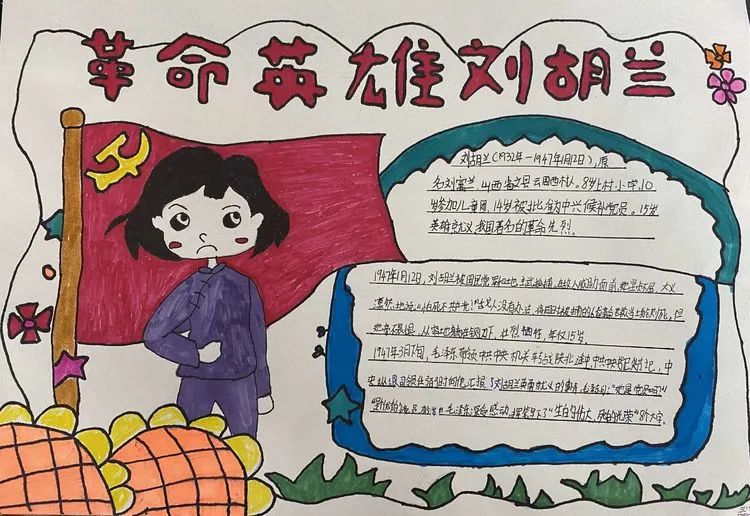 革命英雄刘胡兰
刘胡兰(1932年-1947年1月12日),原
名刘富兰 山西省文县云周西村人。8岁上村小学,10
岁参加儿童团,14岁被批为中共候补党员。15岁
英雄就义,我国著名的革命先烈。
1947年1月12日,刘胡兰被国民党军和地主武装抓捕,在敌人威胁面前,她坚贞不屈,大义
凛然地说:"怕死不共产党!"敌人没有办法,将同时被捕的
她毫不畏惧,从容地躺在铡刀下,壮烈牺牲,年仅15岁。
1947年3月下旬,毛泽东带领中共中央机关转战陕北途中,中共中央书记,中
汇报了刘胡兰英勇就义的事情,
毛泽东深受感动,挥笔写下了"生的伟大,死的光荣"8个大字。